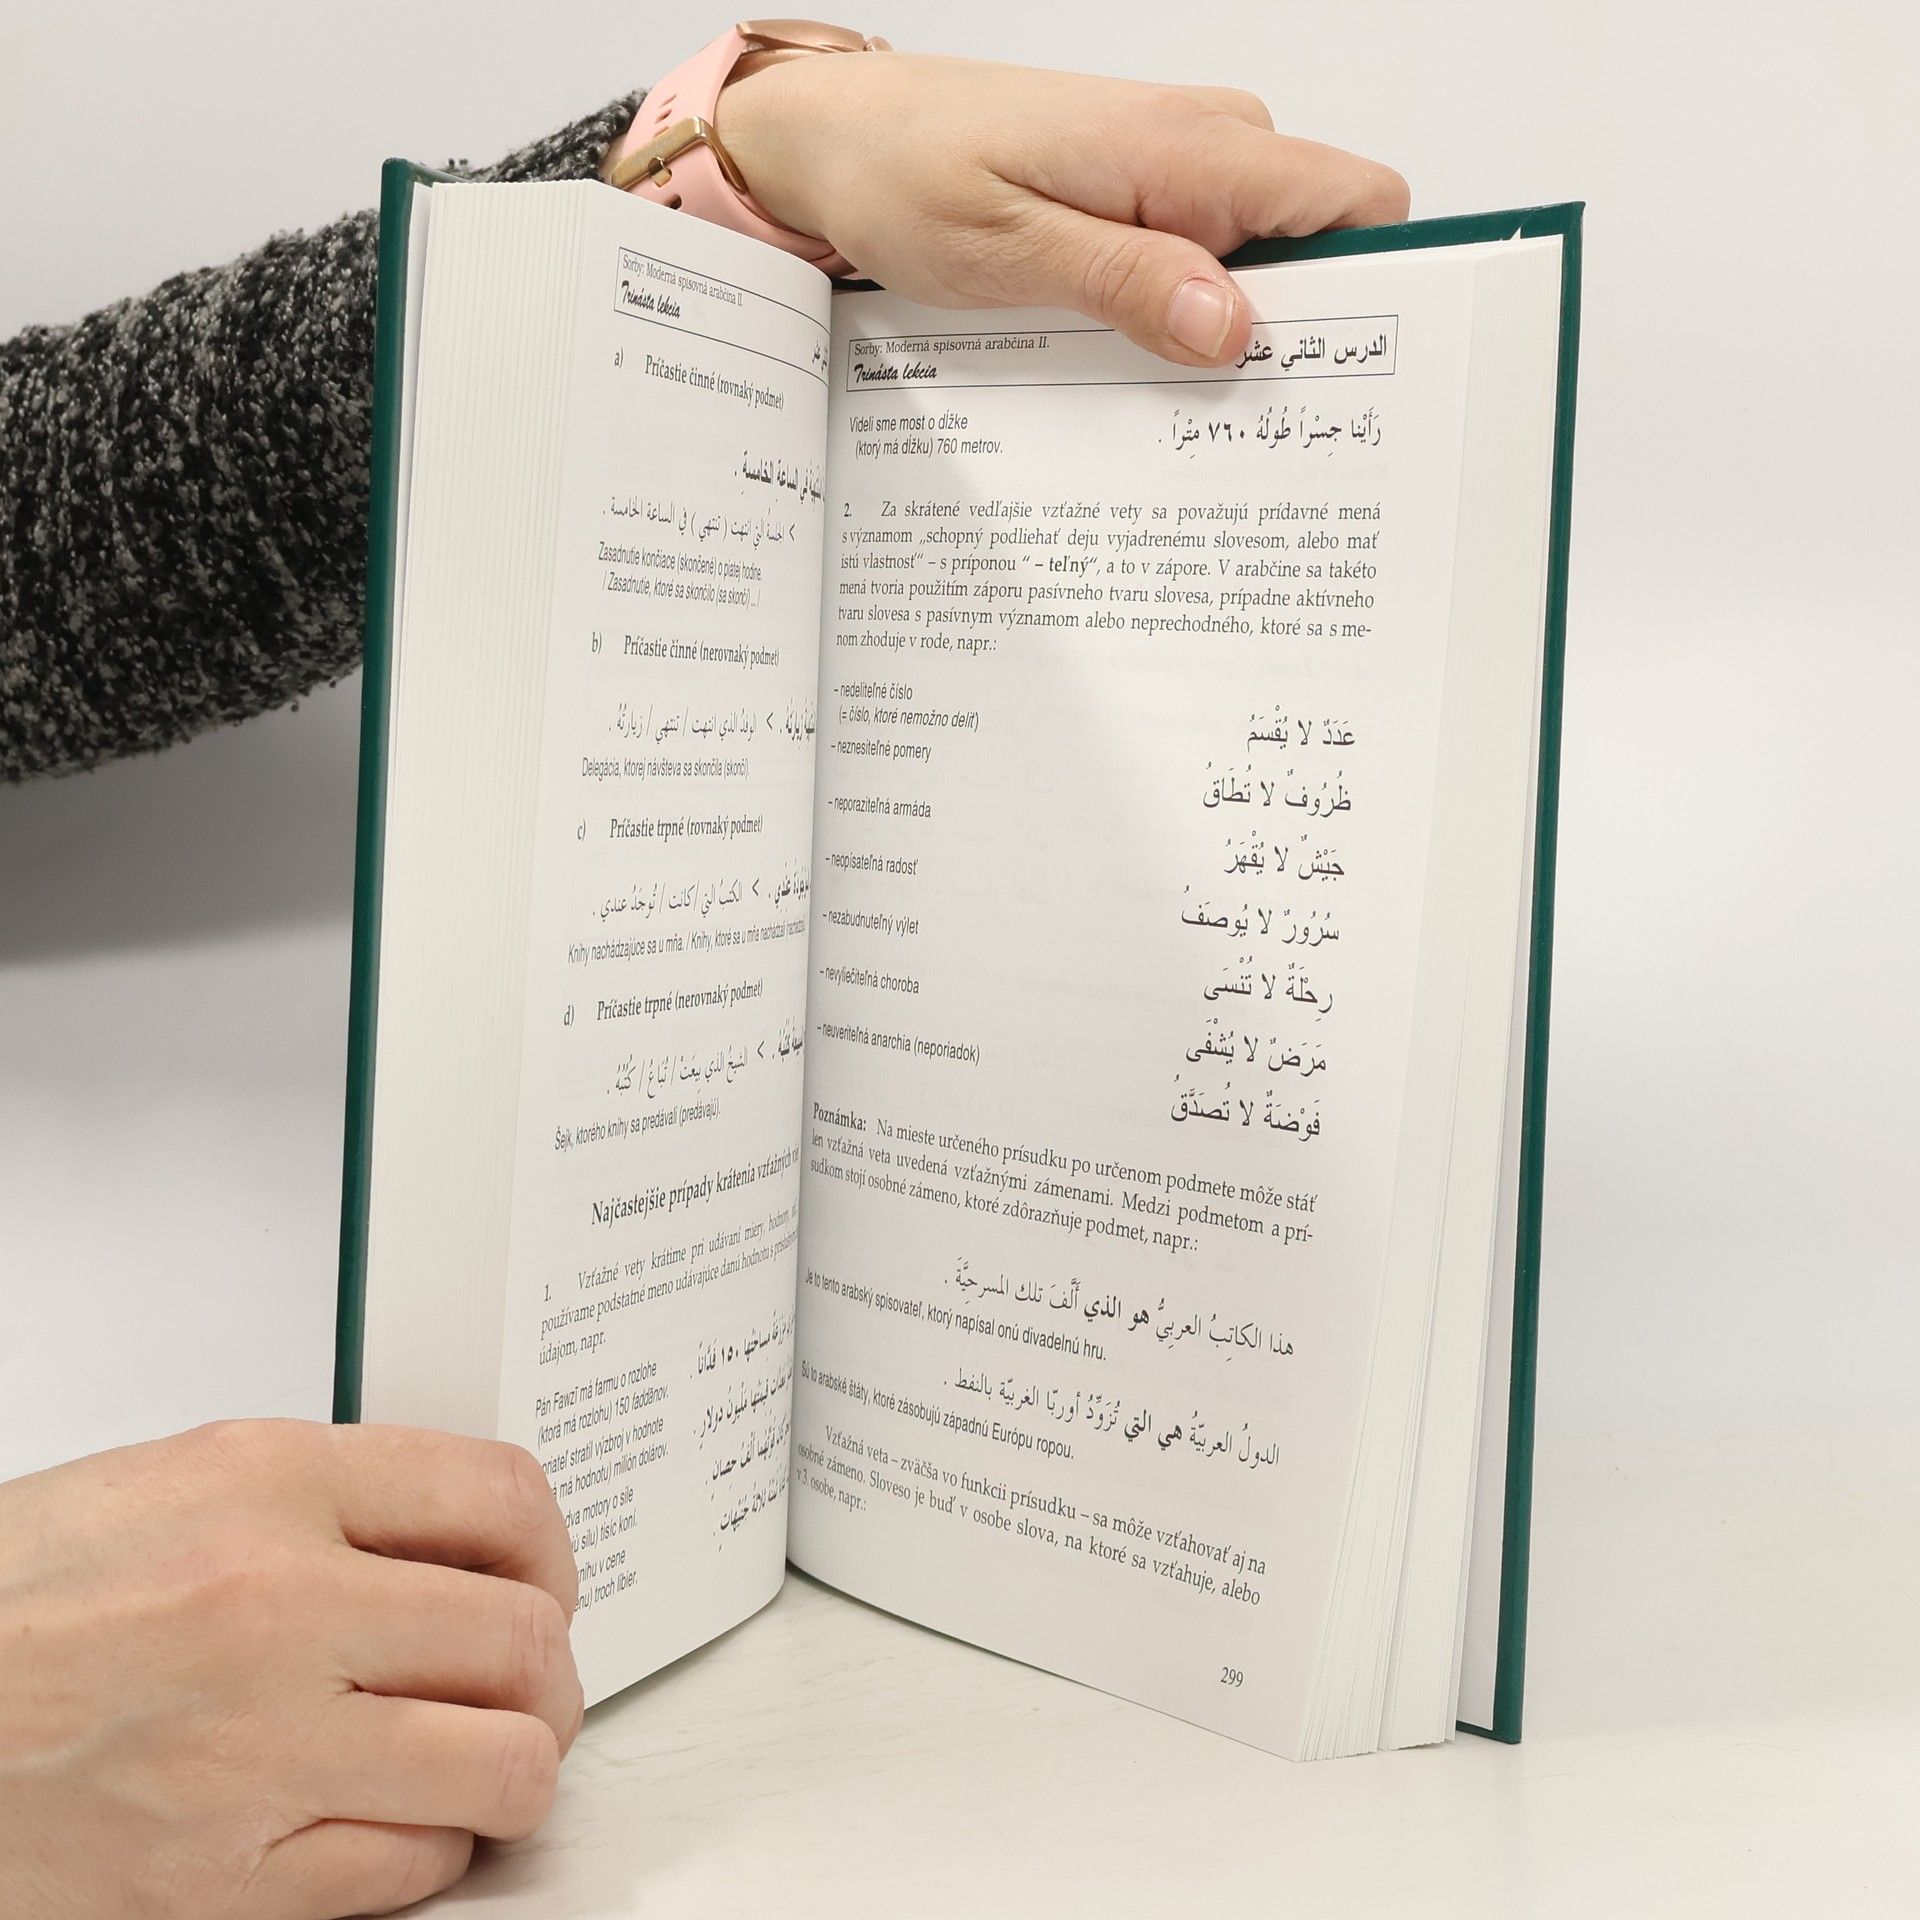 Sorby: Moderná spisovná arabčina II.
Trinásta lekcia
a) Príčastie činné (rovnaký podmet)
في الساعةِ الخامسةِ .
> الجلسةُ التي انتهت ( تنتهي ) في الساعة الخامسة .
Zasadnutie končiace (skončené) o piatej hodine.
/ Zasadnutie, ktoré sa skončilo (sa skončí) ... /
b) Príčastie činné (nerovnaký podmet)
زيارتُهُ . > الوفدُ الذي انتهت / تنتهي / زيارتُهُ .
Delegácia, ktorej návšteva sa skončila (skončí).
c) Príčastie trpné (rovnaký podmet)
عِنْدِي . > الكتبُ التي / كانت / تُوجَدُ عندي .
Knihy nachádzajúce sa u mňa. / Knihy, ktoré sa u mňa nachádzali
d) Príčastie trpné (nerovnaký podmet)
كُتُبُهُ . > الشيخُ الذي بِيعَتْ / تُبَاعُ / كُتُبُهُ .
Šejk, ktorého knihy sa predávali (predávajú).
Najčastejšie prípady krátenia vzťažných viet
1. Vzťažné vety krátime pri udávaní miery, hodnoty,
používame podstatné meno udávajúce danú hodnotu s
údajom, napr.
Pán Fawzī má farmu o rozlohe
(ktorá má rozlohu) 150 faddānov.
مِساحتُها ١٥٠ فَدَّاناً .
priateľ stratil výzbroj v hodnote
má hodnotu) milión dolárov.
قيمتُها مَلْيونُ دولارٍ .
dva motory o sile
silu) tisíc koní.
قُوَّتُهما أَلْفُ حِصانٍ .
knihu v cene
troch libier.
ثلاثةُ جُنَيْهاتٍ .
Sorby: Moderná spisovná arabčina II.
الدرس الثاني عشر
Trinásta lekcia
Videli sme most o dĺžke
(ktorý má dĺžku) 760 metrov.
رَأَيْنا جِسْراً طُولُهُ ٧٦٠ مِتْراً .
2. Za skrátené vedľajšie vzťažné vety sa považujú prídavné mená
s významom „schopný podliehať deju vyjadrenému slovesom, alebo mať
istú vlastnosť“ – s príponou “ – teľný“, a to v zápore. V arabčine sa takéto
mená tvoria použitím záporu pasívneho tvaru slovesa, prípadne aktívneho
tvaru slovesa s pasívnym významom alebo neprechodného, ktoré sa s me-
nom zhoduje v rode, napr.:
– nedeliteľné číslo
(= číslo, ktoré nemožno deliť)
عَدَدٌ لا يُقْسَمُ
– neznesiteľné pomery
ظُرُوفٌ لا تُطَاقُ
– neporaziteľná armáda
جَيْشٌ لا يُقْهَرُ
– neopísateľná radosť
سُرُورٌ لا يُوصَفُ
– nezabudnuteľný výlet
رِحْلَةٌ لا تُنْسَى
– nevyliečiteľná choroba
مَرَضٌ لا يُشْفَى
– neuveriteľná anarchia (neporiadok)
فَوْضَةٌ لا تُصَدَّقُ
Poznámka: Na mieste určeného prísudku po určenom podmete môže stáť
len vzťažná veta uvedená vzťažnými zámenami. Medzi podmetom a prí-
sudkom stojí osobné zámeno, ktoré zdôrazňuje podmet, napr.:
هذا الكاتِبُ العربِيُّ هو الذي أَلَّفَ تلك المسرحِيَّةَ .
Je to tento arabský spisovateľ, ktorý napísal onú divadelnú hru.
الدولُ العربيّةُ هي التي تُزَوِّدُ أوربّا الغربيّة بالنفط .
Sú to arabské štáty, ktoré zásobujú západnú Európu ropou.
Vzťažná veta – zväčša vo funkcii prísudku – sa môže vzťahovať aj na
osobné zámeno. Sloveso je buď v osobe slova, na ktoré sa vzťahuje, alebo
v 3. osobe, napr.:
299